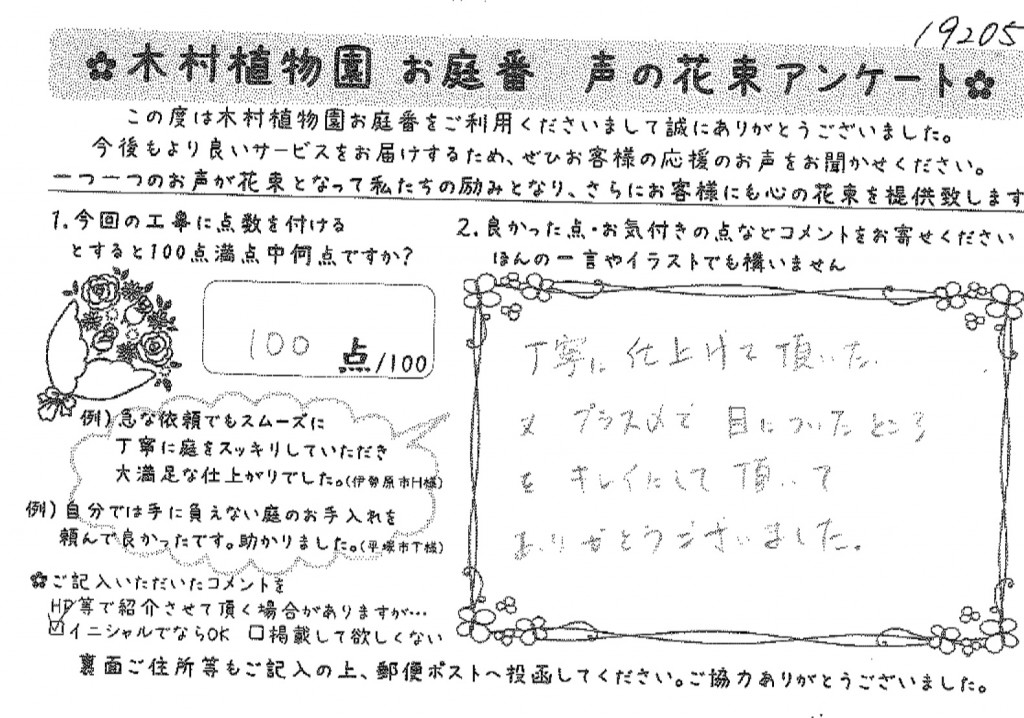 19205
木村植物園 お庭番 声の花束アンケート
この度は木村植物園お庭番をご利用くださいまして誠にありがとうございました。
今後もより良いサービスをお届けするため、ぜひお客様の応援のお声をお聞かせください。
一つ一つのお声が花束となって私たちの励みとなり、さらにお客様にも心の花束を提供致します
1.今回の工事に点数を付ける
とすると100点満点中何点ですか?
100 点/100
例)急な依頼でもスムーズに
丁寧に庭をスッキリしていただき
大満足な仕上がりでした。(伊勢原市H様)
例)自分では手に負えない庭のお手入れを
頼んで良かったです。助かりました。(平塚市T様)
ご記入いただいたコメントを
HP等で紹介させて頂く場合がありますが…
☑イニシャルでならOK □掲載して欲しくない
2.良かった点・お気付きの点などコメントをお寄せください
ほんの一言やイラストでも構いません
丁寧に仕上げて頂いた
又 プラスαで 目についたところ
を キレイにして 頂いて
ありがとうございました。
裏面ご住所等もご記入の上、郵便ポストへ投函してください。ご協力ありがとうございました。